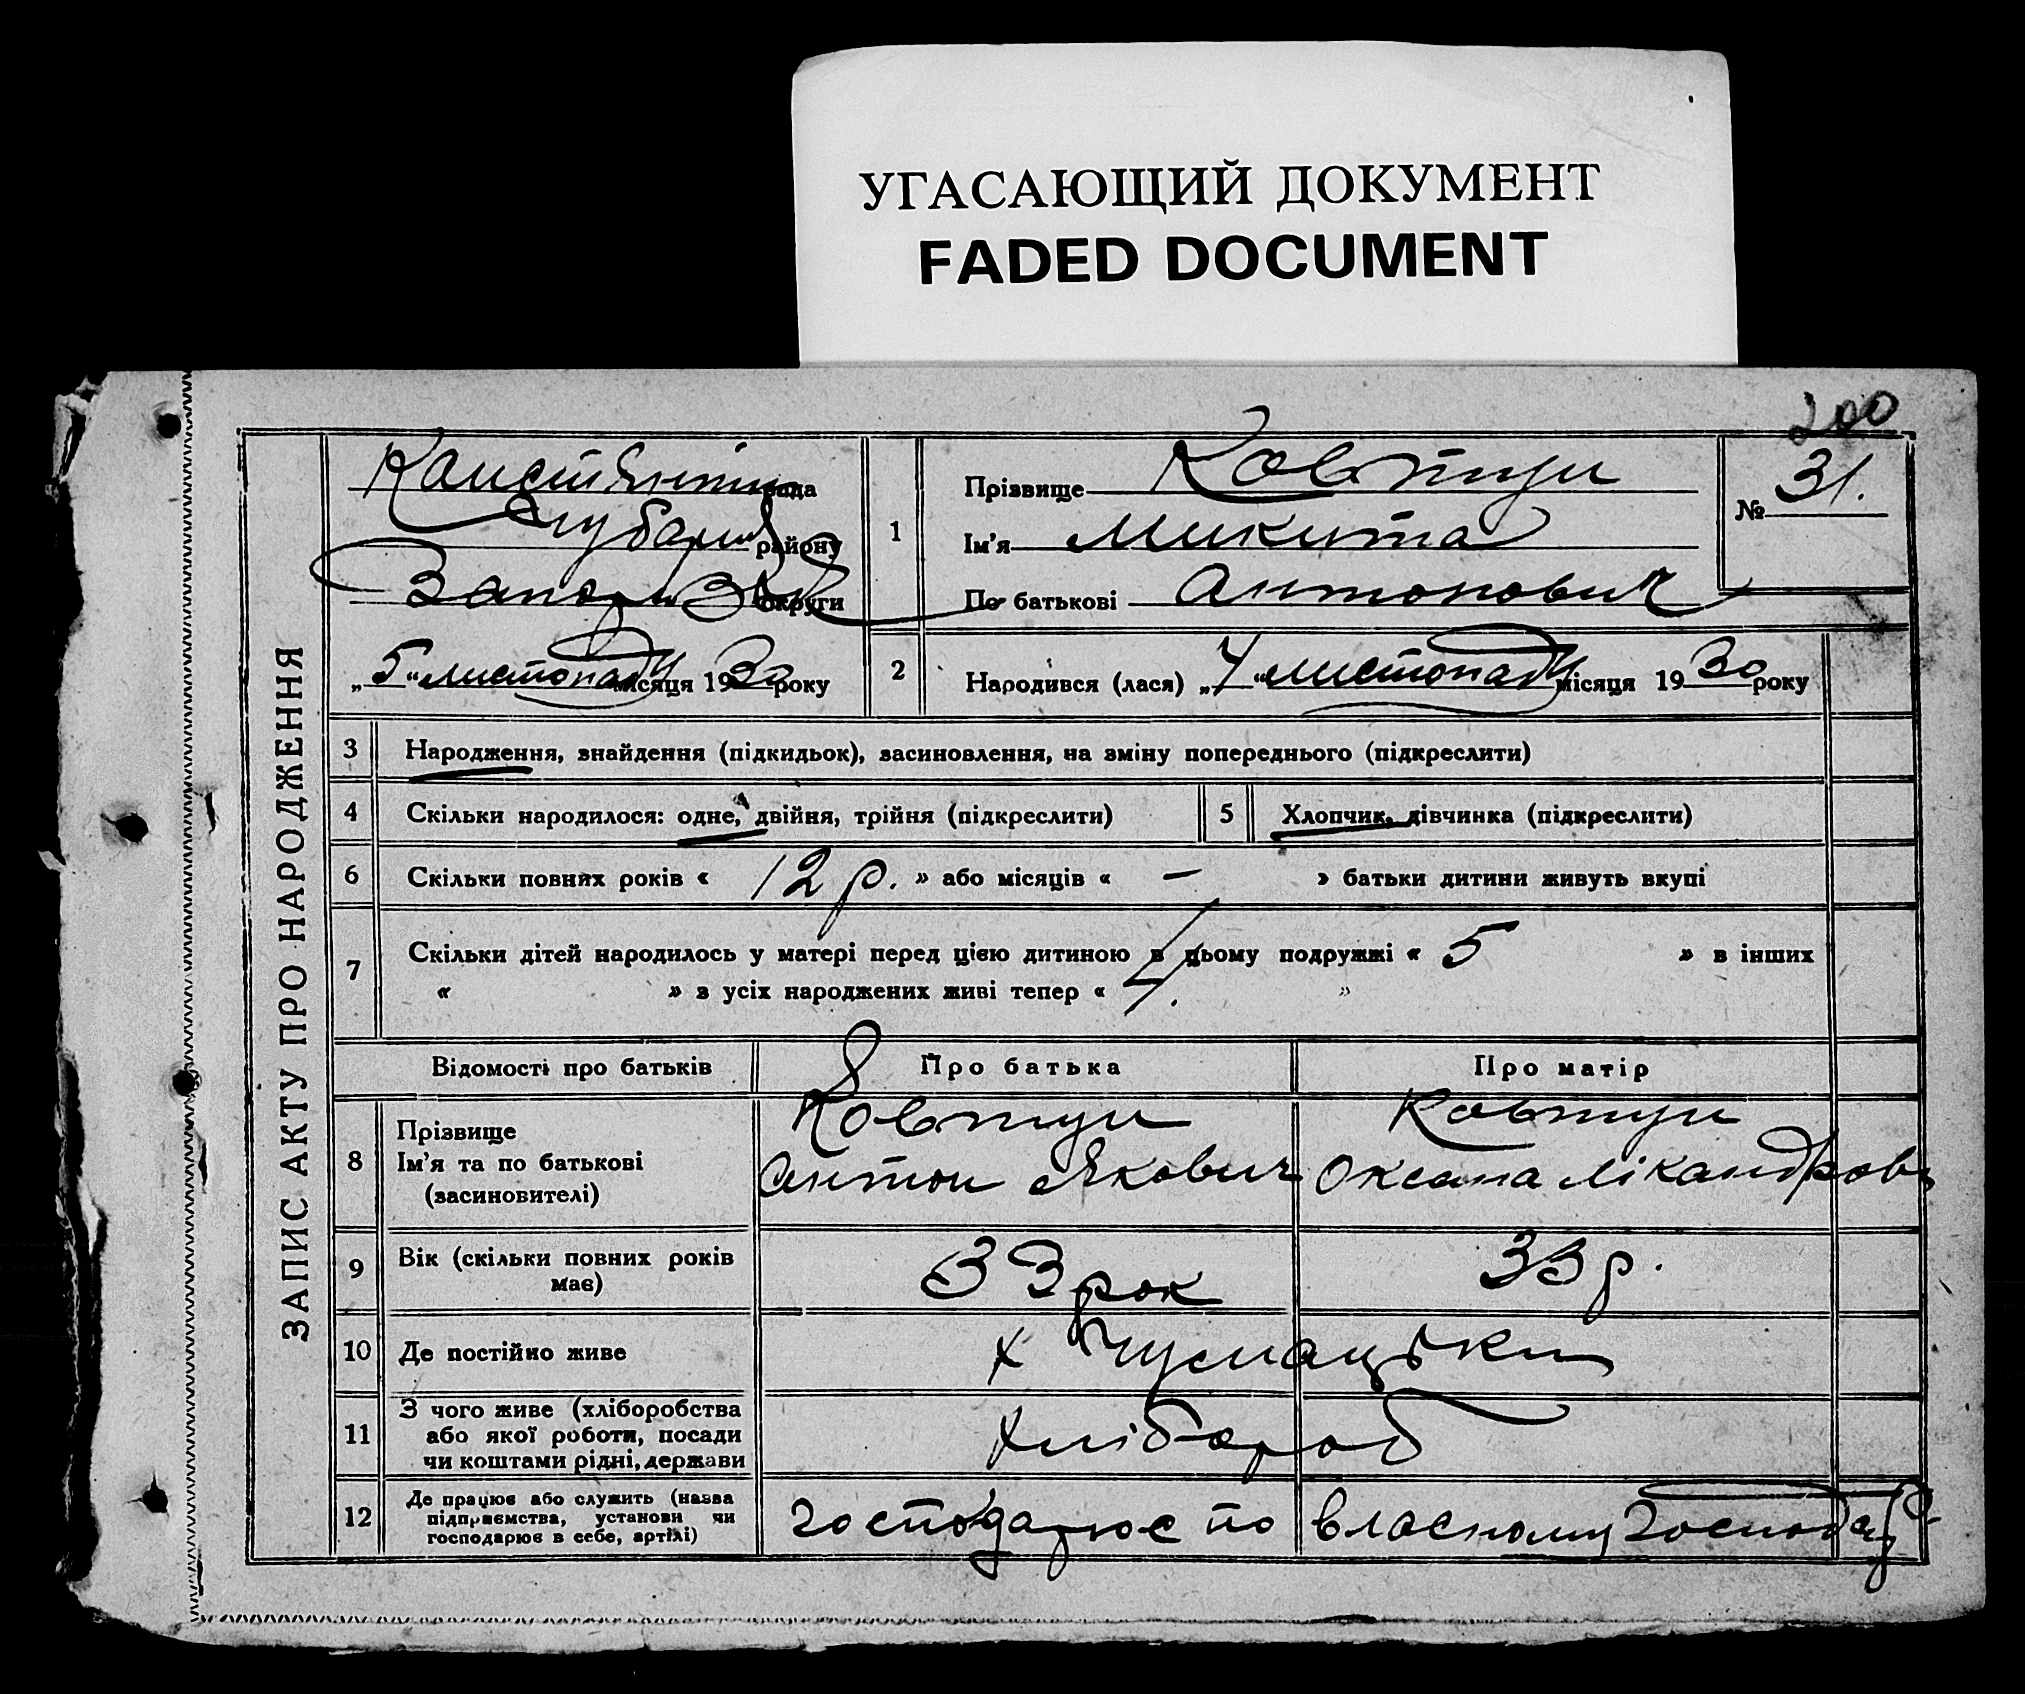 УГАСАЮЩИЙ ДОКУМЕНТ
FADED DOCUMENT
200
ЗАПИС АКТУ ПРО НАРОДЖЕННЯ
рада
району
округи
„5“ листопаду місяця 1930 року
1
Прізвище Ковтун
Ім'я Микита
По батькові Антонович
№ 31.
2
Народився (лася) „4“ листопаду місяця 1930 року
3 Народження, знайдення (підкидьок), засиновлення, на зміну попереднього (підкреслити)
4 Скільки народилося: одне, двійня, трійня (підкреслити)
5 Хлопчик, дівчинка (підкреслити)
6 Скільки повних років « 12 р. » або місяців « — » батьки дитини живуть вкупі
7 Скільки дітей народилось у матері перед цією дитиною в цьому подружжі « 5 » в інших
« » з усіх народжених живі тепер « 4. »
Відомості про батьків Про батька Про матір
8 Прізвище
Ім'я та по батькові
(засиновителі)
Ковтун
Антон Якович
Ковтун
Оксана Лікандров
9 Вік (скільки повних років
має)
33 рок
33 р.
10 Де постійно живе
х Чумацьки
11 З чого живе (хліборобства
або якої роботи, посади
чи коштами рідні, держави
Хлібороб
12 Де працює або служить (назва
підприємства, установи чи
господарює в себе, артілі)
господарює по власному господар